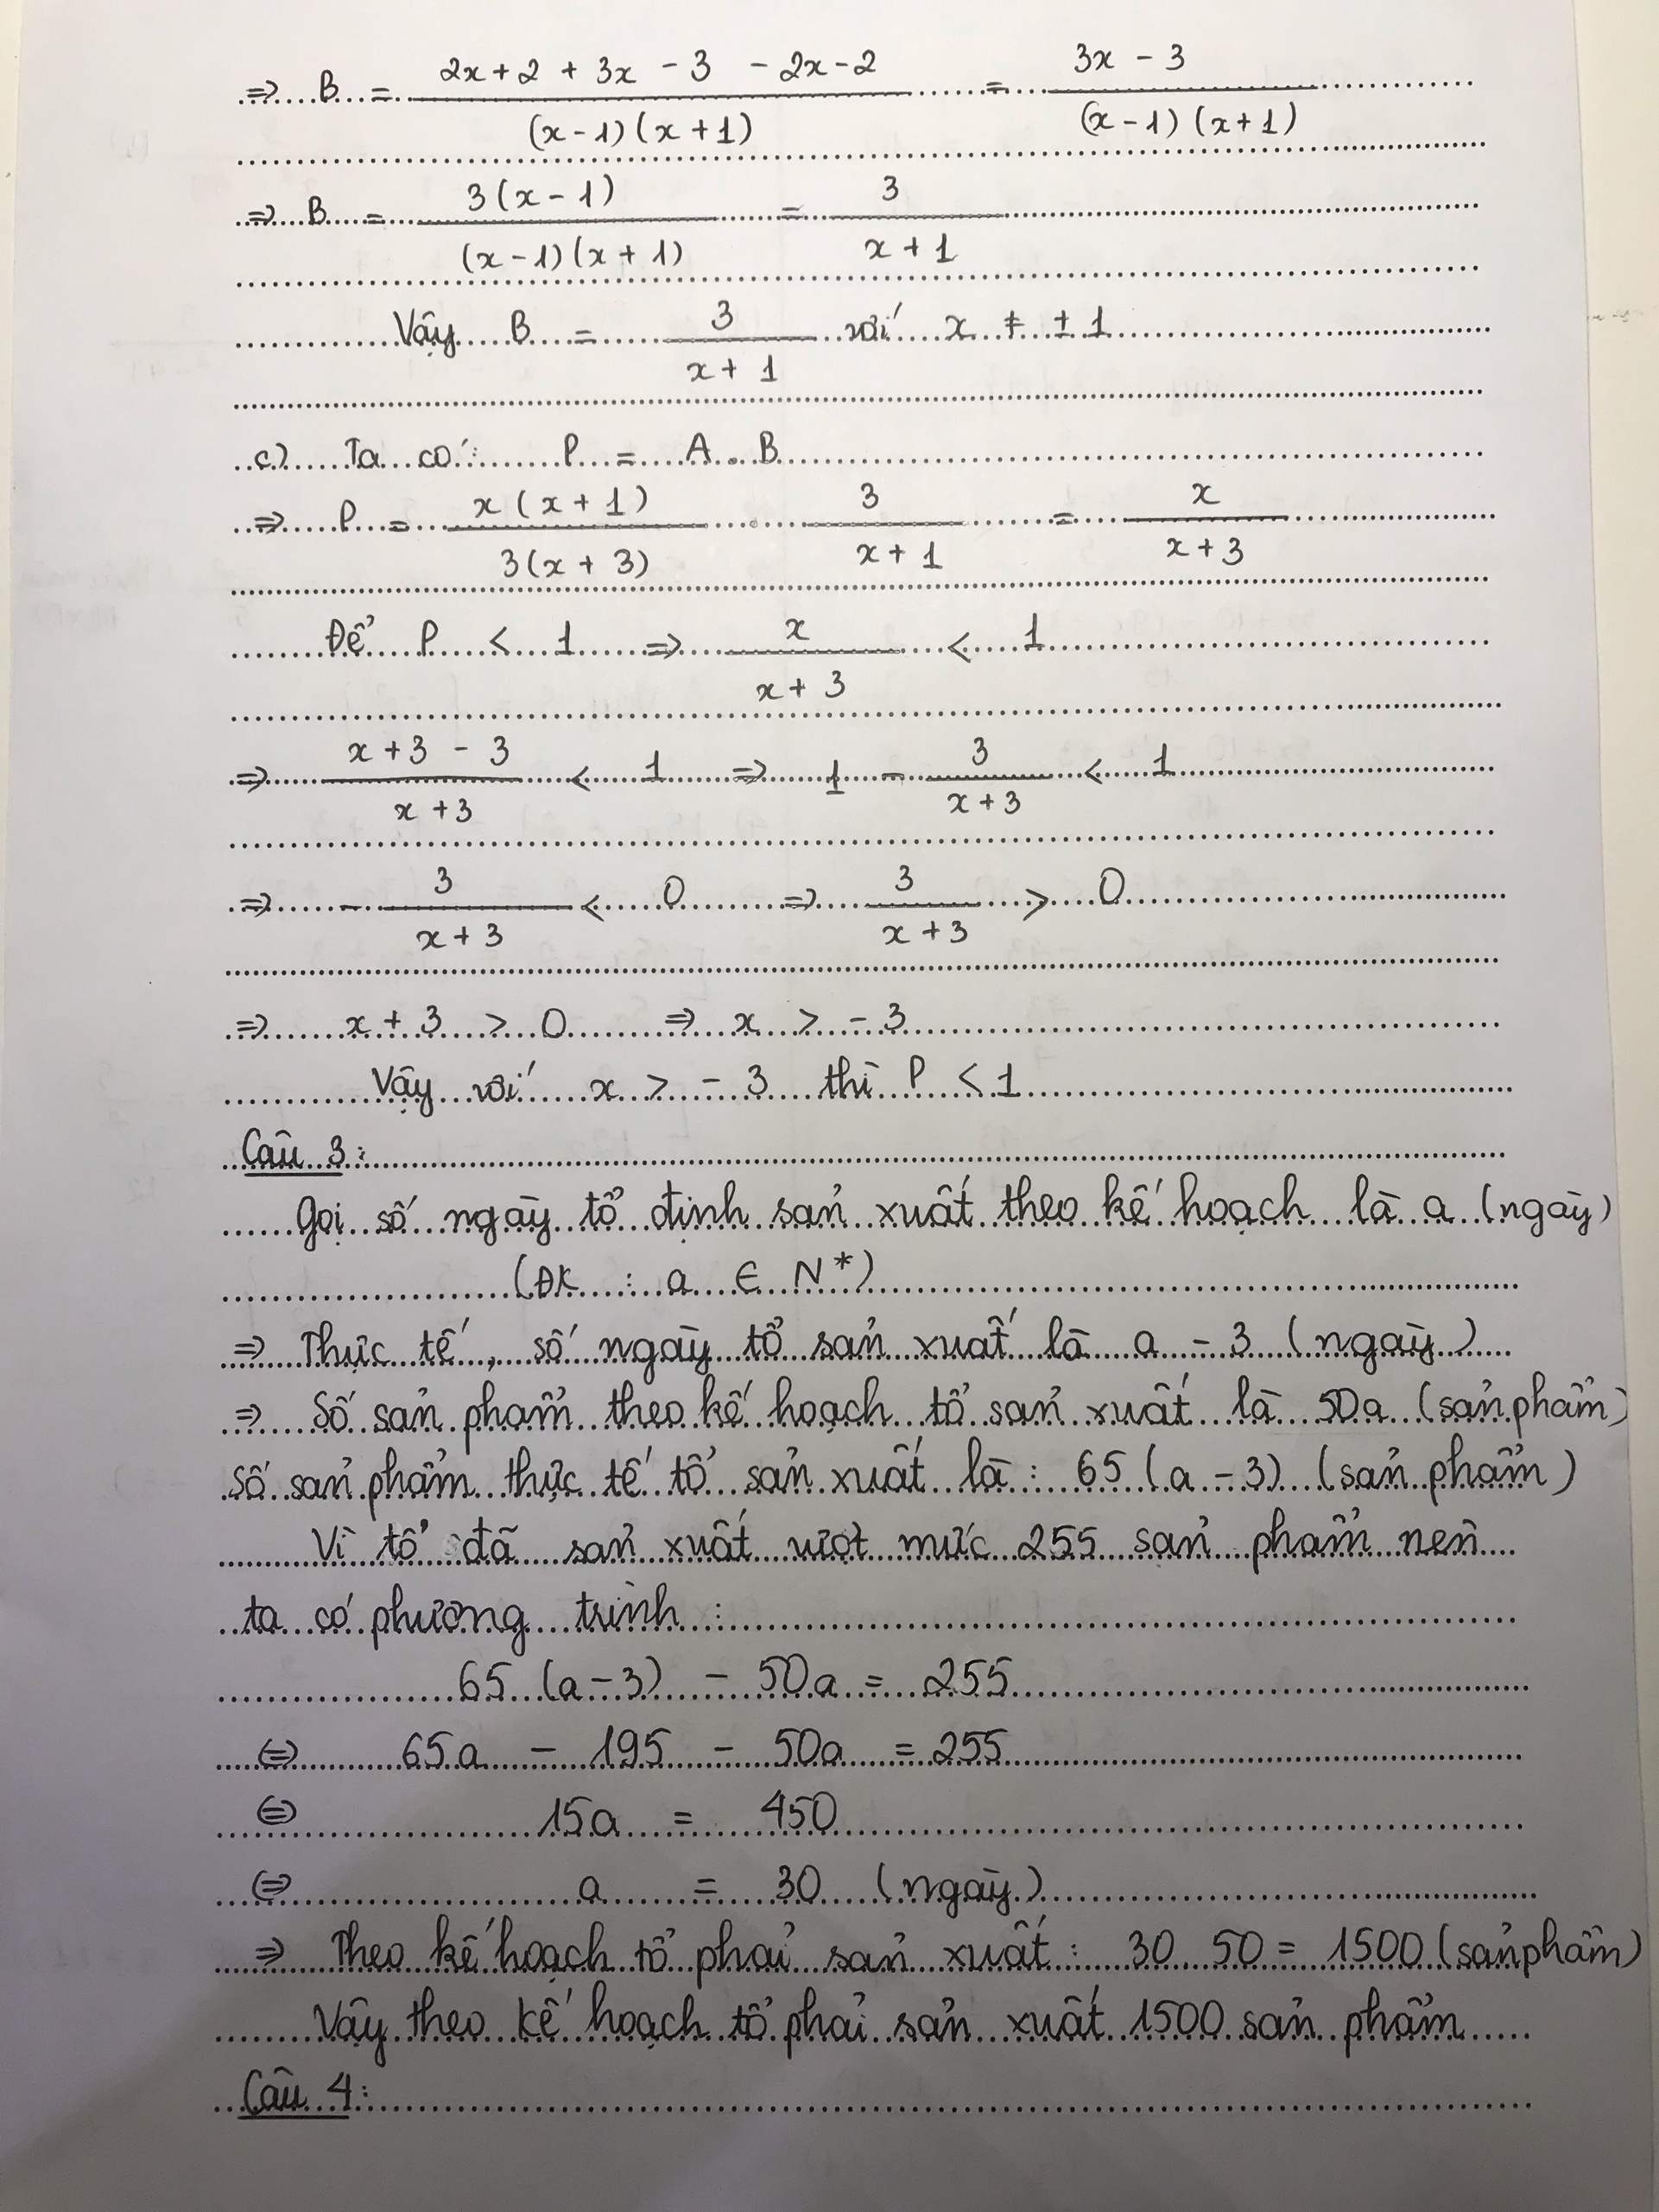 => B = (2x+2 + 3x - 3 - 2x-2) / ((x-1)(x+1)) = (3x - 3) / ((x-1)(x+1))
=> B = 3(x-1) / ((x-1)(x+1)) = 3 / (x+1)
Vậy B = 3 / (x+1) với x ≠ ±1
c) Ta có: P = A.B
=> P = x(x+1) / (3(x+3)) . 3 / (x+1) = x / (x+3)
Để P < 1 => x / (x+3) < 1
=> (x+3-3) / (x+3) < 1 => 1 - 3 / (x+3) < 1
=> - 3 / (x+3) < 0 => 3 / (x+3) > 0
=> x + 3 > 0 => x > -3
Vậy với x > -3 thì P < 1
Câu 3:
Gọi số ngày tổ định sản xuất theo kế hoạch là a (ngày)
(ĐK : a ∈ N*)
=> Thực tế, số ngày tổ sản xuất là a - 3 (ngày)
=> Số sản phẩm theo kế hoạch tổ sản xuất là 50a (sản phẩm)
Số sản phẩm thực tế tổ sản xuất là : 65 (a - 3) (sản phẩm)
Vì tổ đã sản xuất vượt mức 255 sản phẩm nên
ta có phương trình :
65 (a-3) - 50a = 255
⇔ 65a - 195 - 50a = 255
⇔ 15a = 450
⇔ a = 30 (ngày)
=> Theo kế hoạch tổ phải sản xuất : 30.50 = 1500 (sản phẩm)
Vậy theo kế hoạch tổ phải sản xuất 1500 sản phẩm
Câu 4: